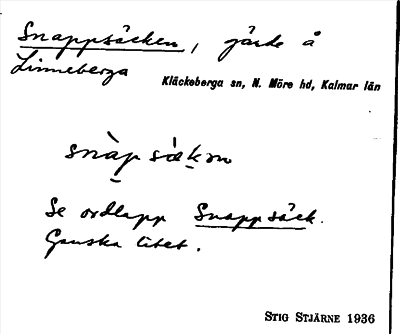 Snappsäcken, gärde å
Linneberga
Kläckeberga sn, N. Möre hd, Kalmar län
snàp säkɷn
Se ordlapp Snappsäck.
Ganska litet.
STIG STJÄRNE 1936